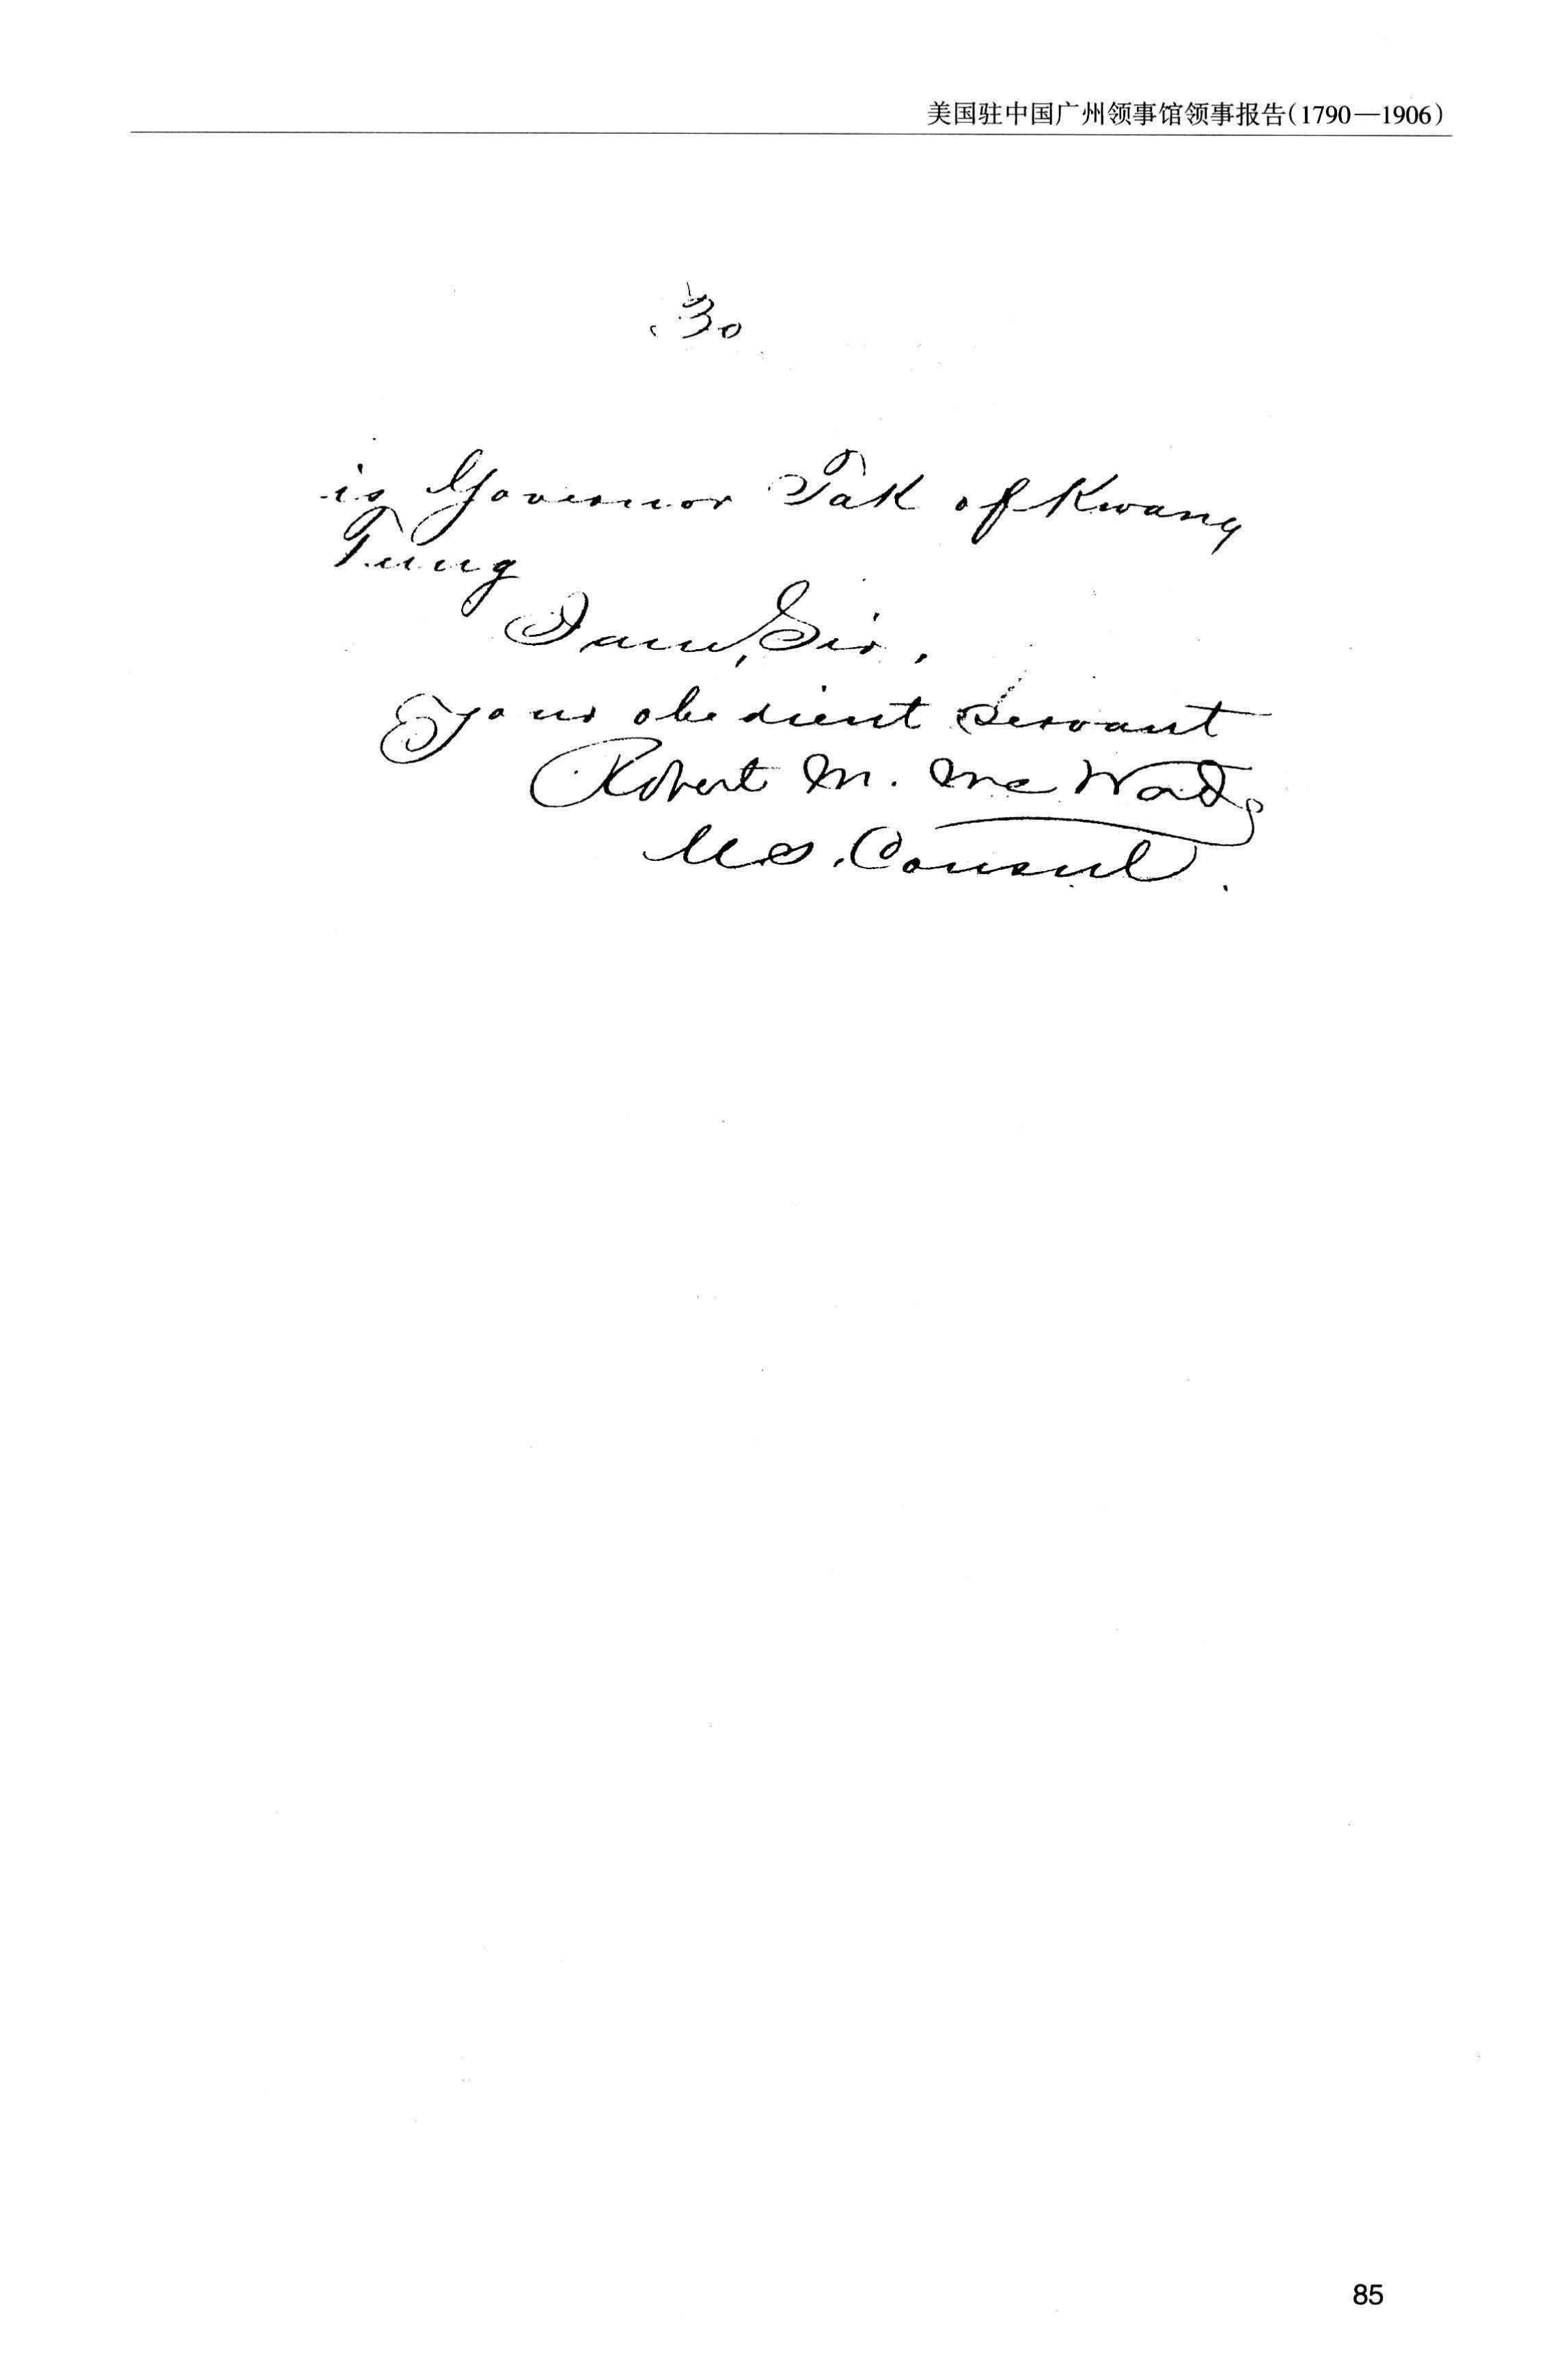 美国驻中国广州领事馆领事报告(1790—1906)
30
is Governor Tak of Kwang
Tung
I am, Sir,
Your obedient servant
Robert M. McWade
U.S. Consul.
85